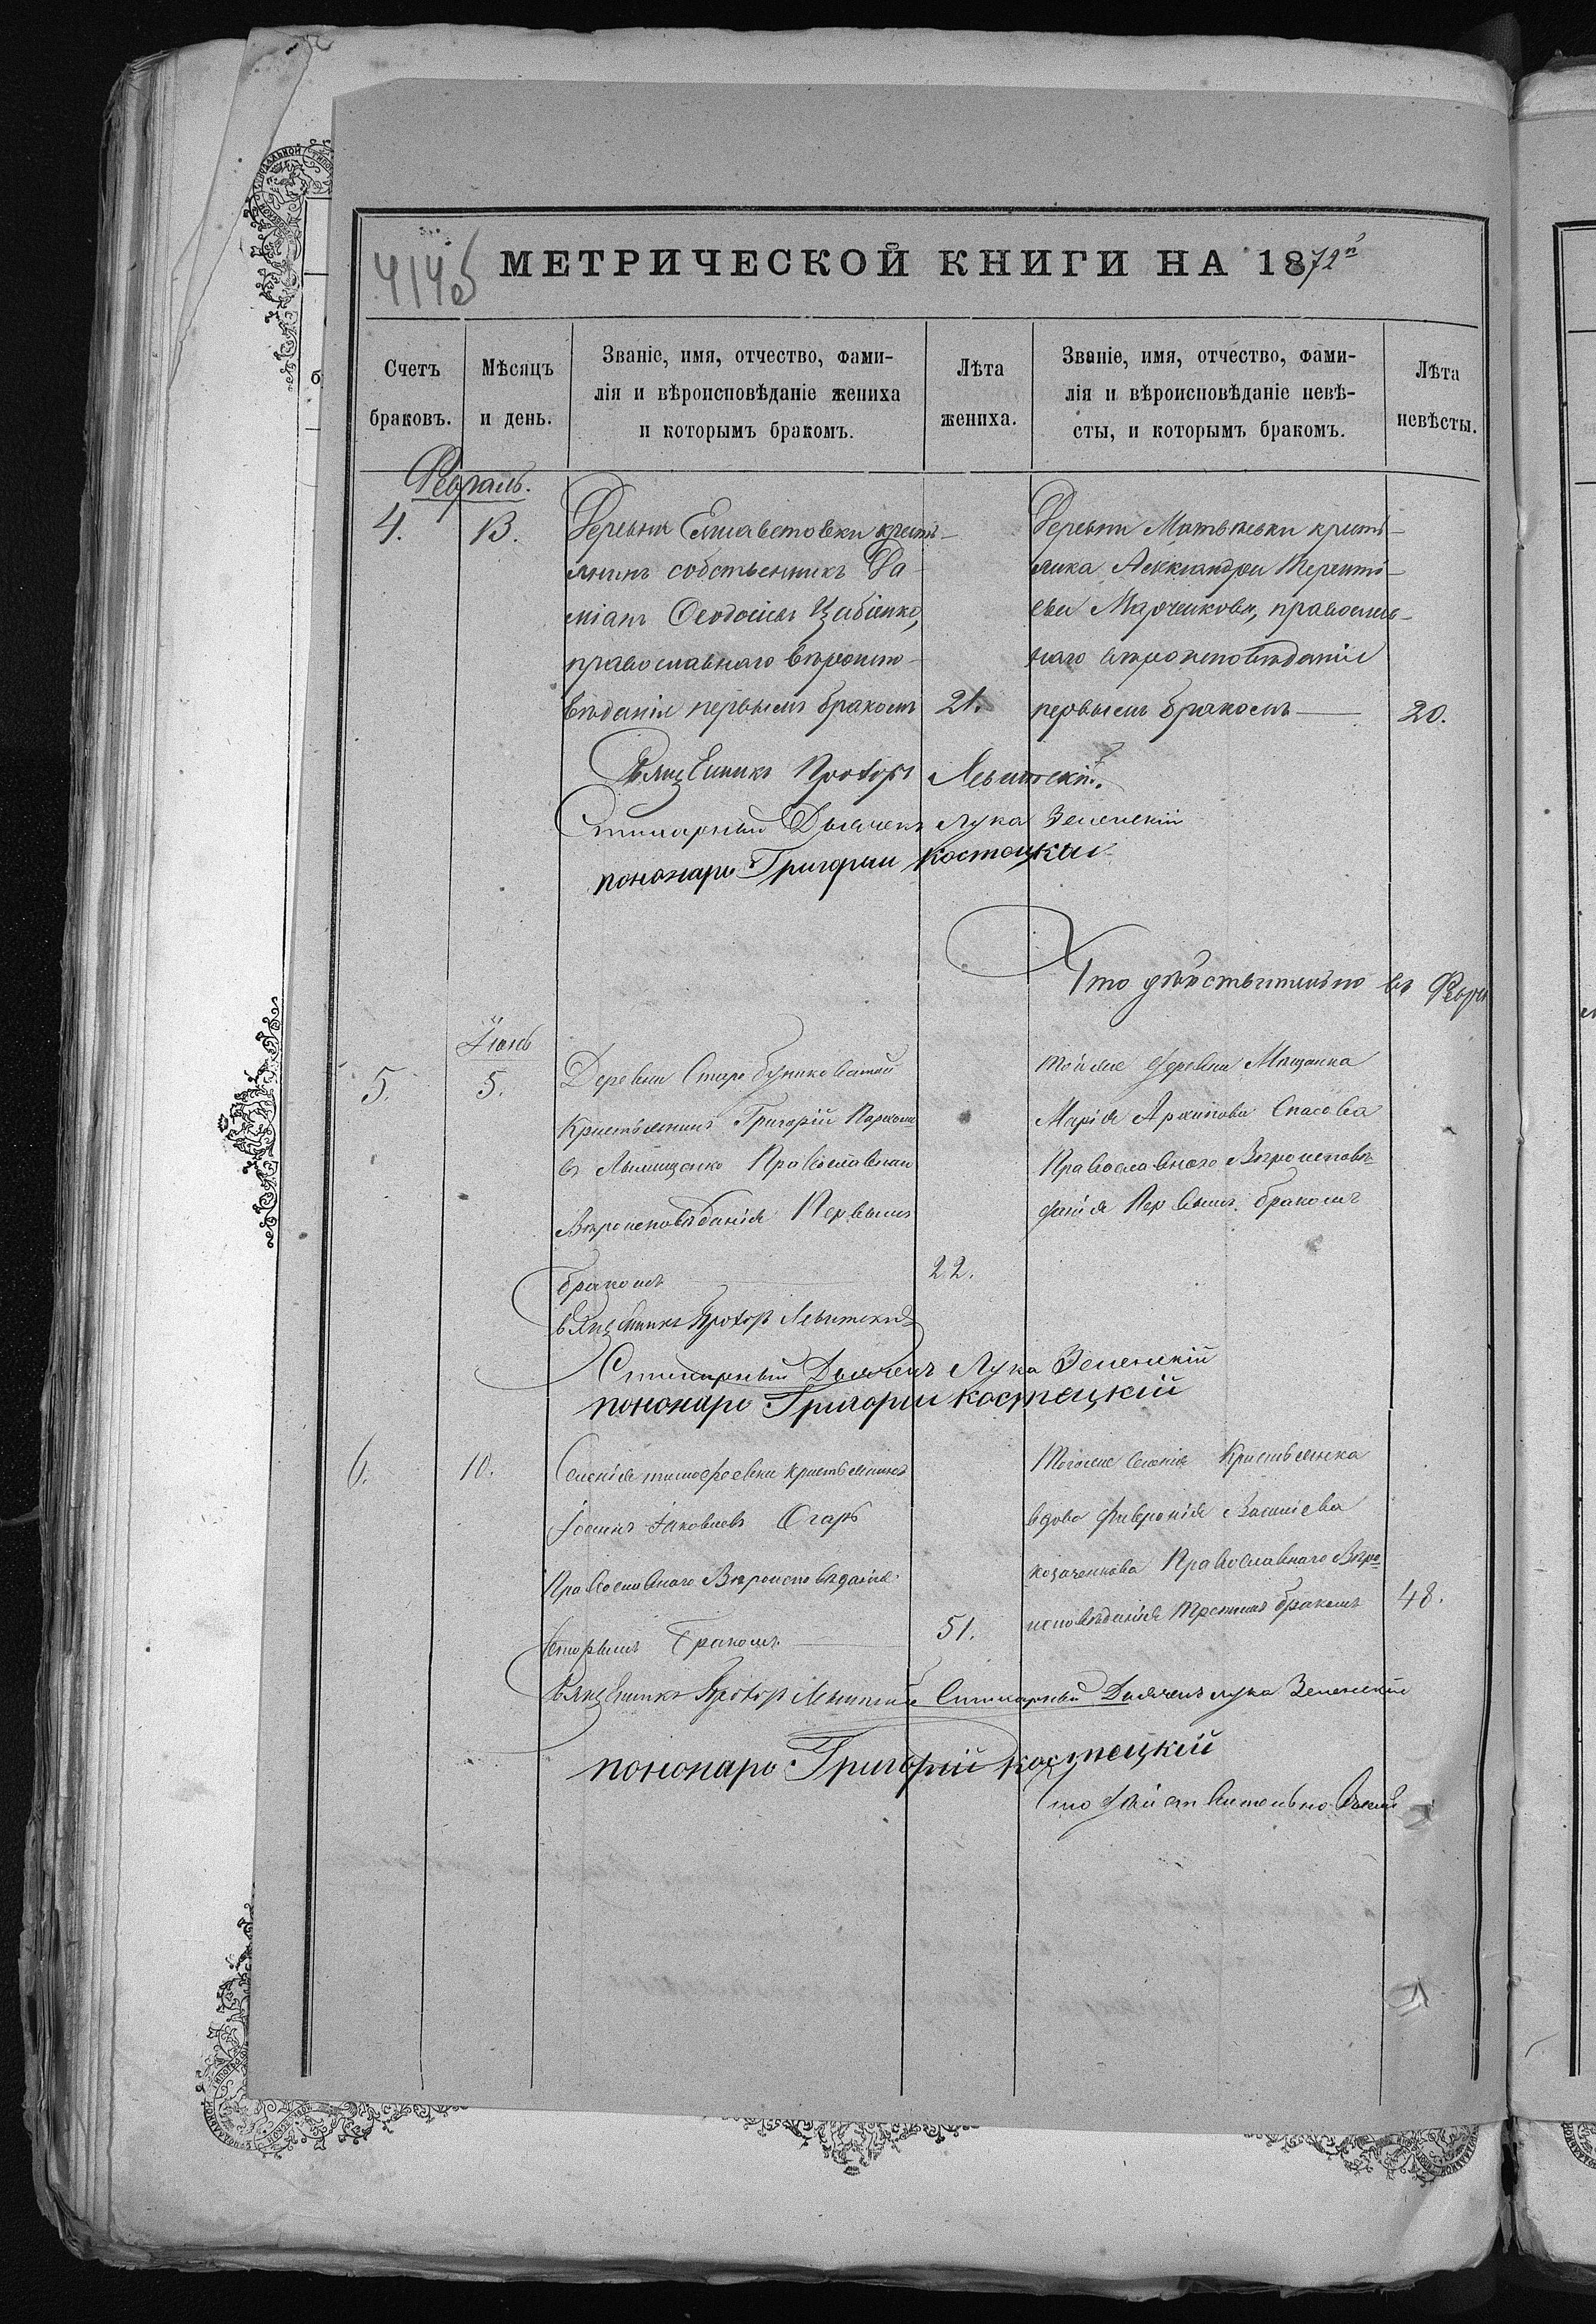 414об
МЕТРИЧЕСКОЙ КНИГИ НА 1872й
Счетъ браковъ.
Мѣсяцъ и день.
Званіе, имя, отчество, фами-
лія и вѣроисповѣданіе жениха
и которымъ бракомъ.
Лѣта жениха.
Званіе, имя, отчество, фами-
лія и вѣроисповѣданіе невѣ-
сты, и которымъ бракомъ.
Лѣта невѣсты.
Февраль.
4.
13.
Деревни Елисаветовки кресть-
янинъ собственникъ Да-
міанъ Ѳеодосіевъ
православнаго вѣроиспо-
вѣданія первымъ бракомъ
21.
Деревни Матвѣевки кресть-
янка Александра Теренті-
ева Марченкова, православ-
наго вѣроисповѣданія
первымъ бракомъ
20.
Священникъ Прохоръ Левитскій.
Дьячекъ Лука Зеленскій
пономарь Григорий Костецкий
Что дѣйствительно въ Февра
Іюнь
5.
5.
Деревни
Крестьянинъ Григорій
Православнаго
Вѣроисповѣданія Первымъ
бракомъ
22.
Той же деревни Мѣщанка
Марія Архипова Спасова
Православнаго Вѣроисповѣ-
данія Первымъ бракомъ
Священникъ Прохоръ Левитскій
Дьячекъ Лука Зеленскій
пономарь Григорий Костецкій
6.
10.
Селенія Тимофеевки Крестьянинъ
Іоаннъ Іаковлевъ Огарь
Православнаго Вѣроисповѣданія
вторымъ бракомъ
51.
Тогоже Селенія Крестьянка
вдова Февронія Василіева
Козаченкова Православнаго Вѣро-
исповѣданія Третимъ бракомъ
48.
Священникъ Прохоръ Левитскій Дьячекъ Лука Зеленскій
пономарь Григорій Костецкій
Что дѣйствительно